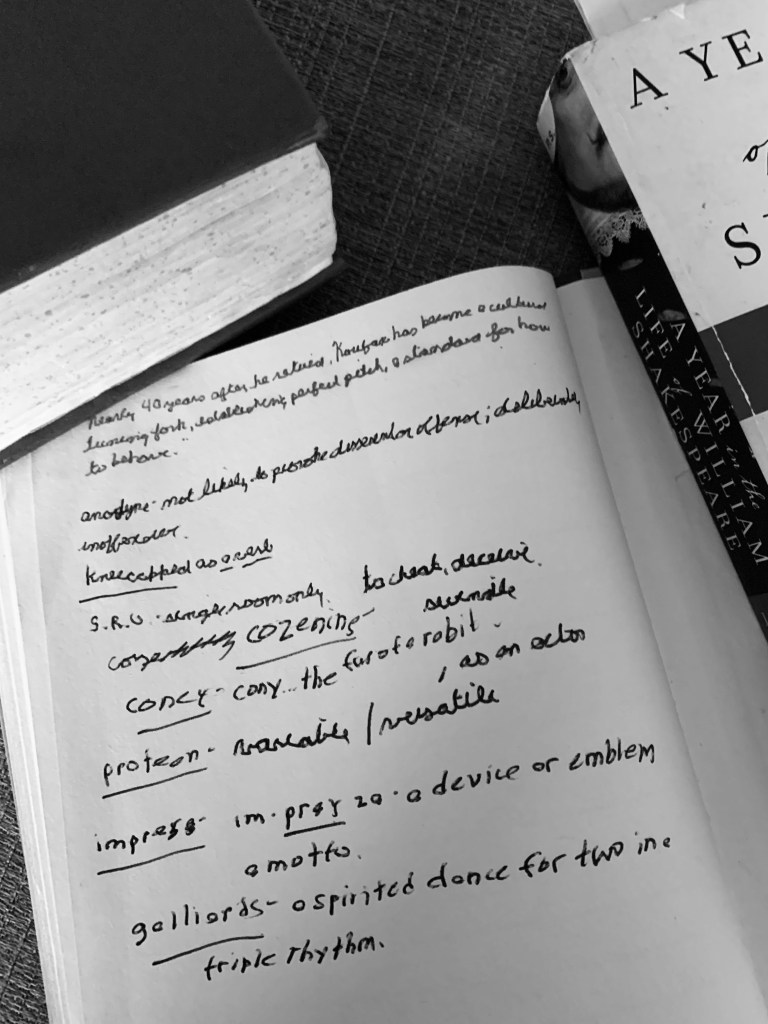 A YE
of
S
A YEAR in the
LIFE of WILLIAM
SHAKESPEARE
nearly 40 years after he retired, Koufax has become a cultural
tuning fork, establishing perfect pitch, a standard for how
to behave."
anodyne - not likely to provoke dissension or tension; deliberately
inoffensive.
kneecapped as a verb
S.R.O. - single room only.
to cheat, deceive.
cozening - swindle
coney - cony... the fur of a rabit.
protean - variable / versatile, as an actor
impresa - im·prey za - a device or emblem
a motto.
galliards - a spirited dance for two in
triple rhythm.